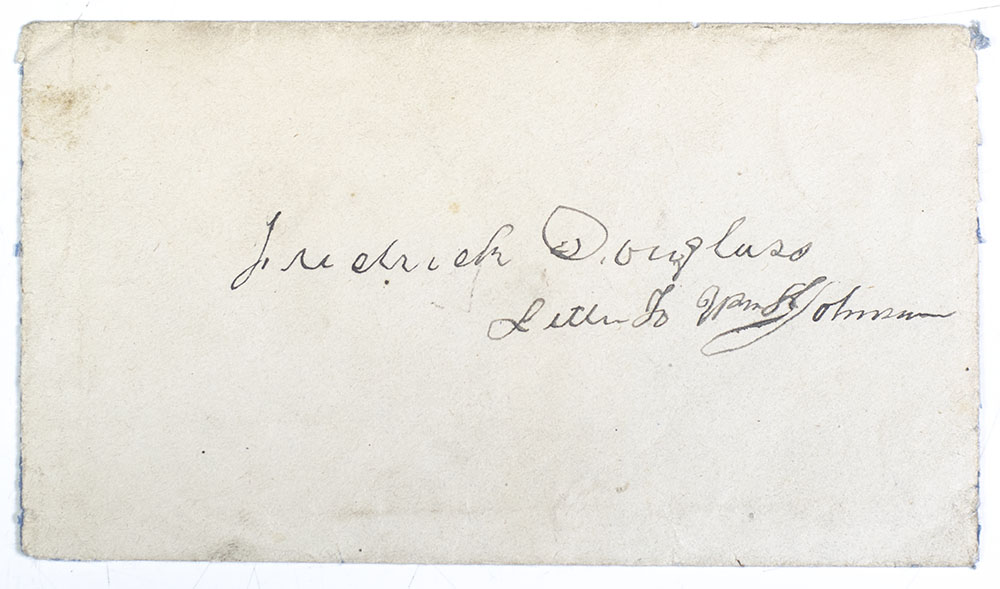 Fredrick Douglass
Letter To Wm H Johnson